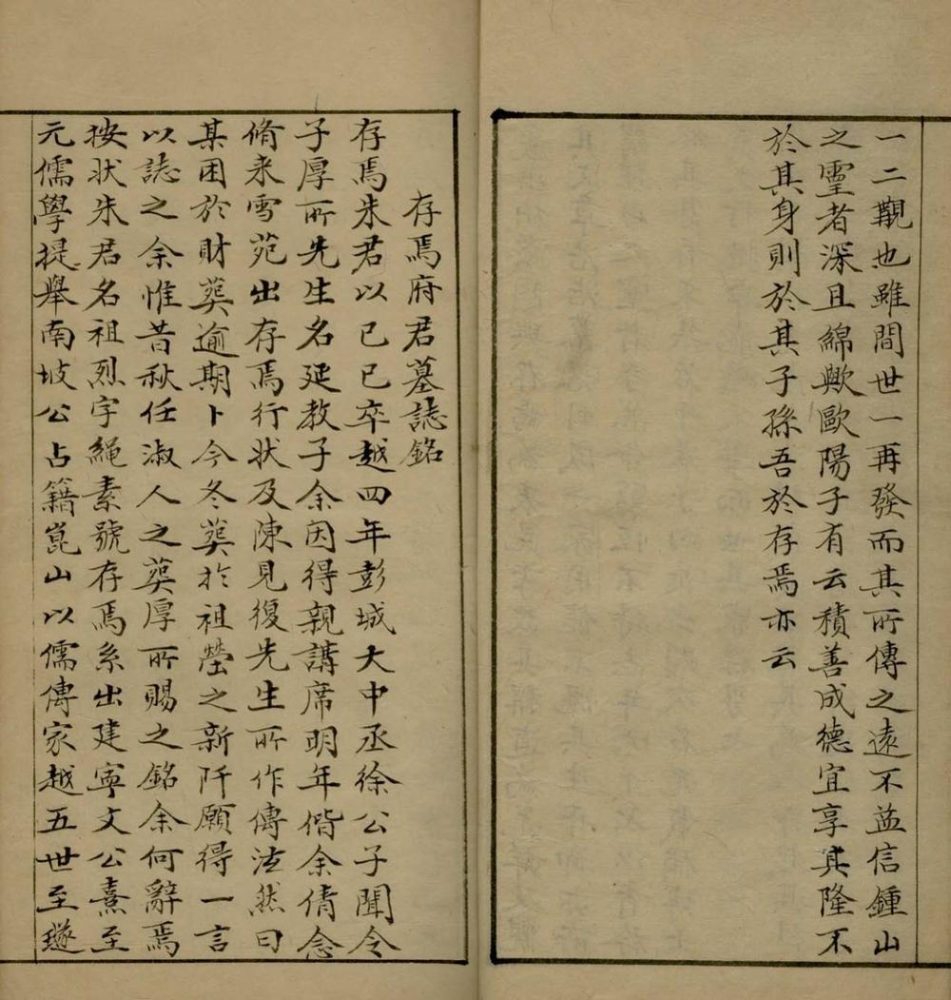 一二覯也雖間世一再發而其所傳之遠不益信鍾山
之靈者深且綿歟歐陽子有云積善成德宜享其隆不
於其身則於其子孫吾於存焉亦云
存焉府君墓誌銘
存焉朱君以己巳卒越四年彭城大中丞徐公子聞令
子厚所先生名延教子余因得親講席明年偕余倩念
脩来雪苑出存焉行状及陳見復先生所作傳泫然曰
某困於財葬逾期卜今冬葬於祖塋之新阡願得一言
以誌之余惟昔秋任淑人之葬厚所賜之銘余何辭焉
按状朱君名祖烈字繩素號存焉系出建寧文公熹至
元儒學提舉南坡公占籍崑山以儒傳家越五世至璲